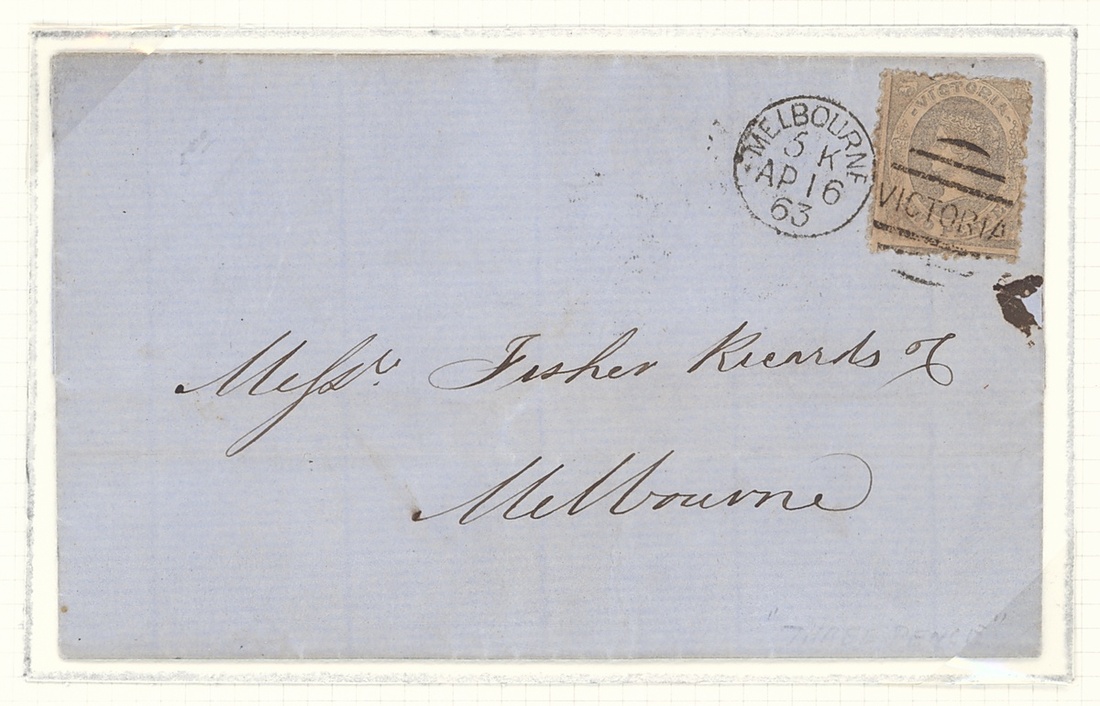 VICTORIA
MELBOURNE
5 K
AP 16
63
VICTORIA
Messrs Fisher Ricards &
Melbourne
"THREE PENCE"